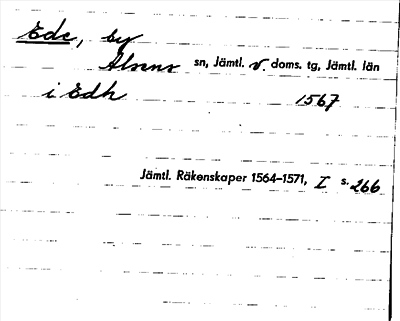 Ede, by
Alsens sn, Jämtl. v. doms. tg, Jämtl. län
i Edh 1567
Jämtl. Räkenskaper 1564–1571, I s. 266